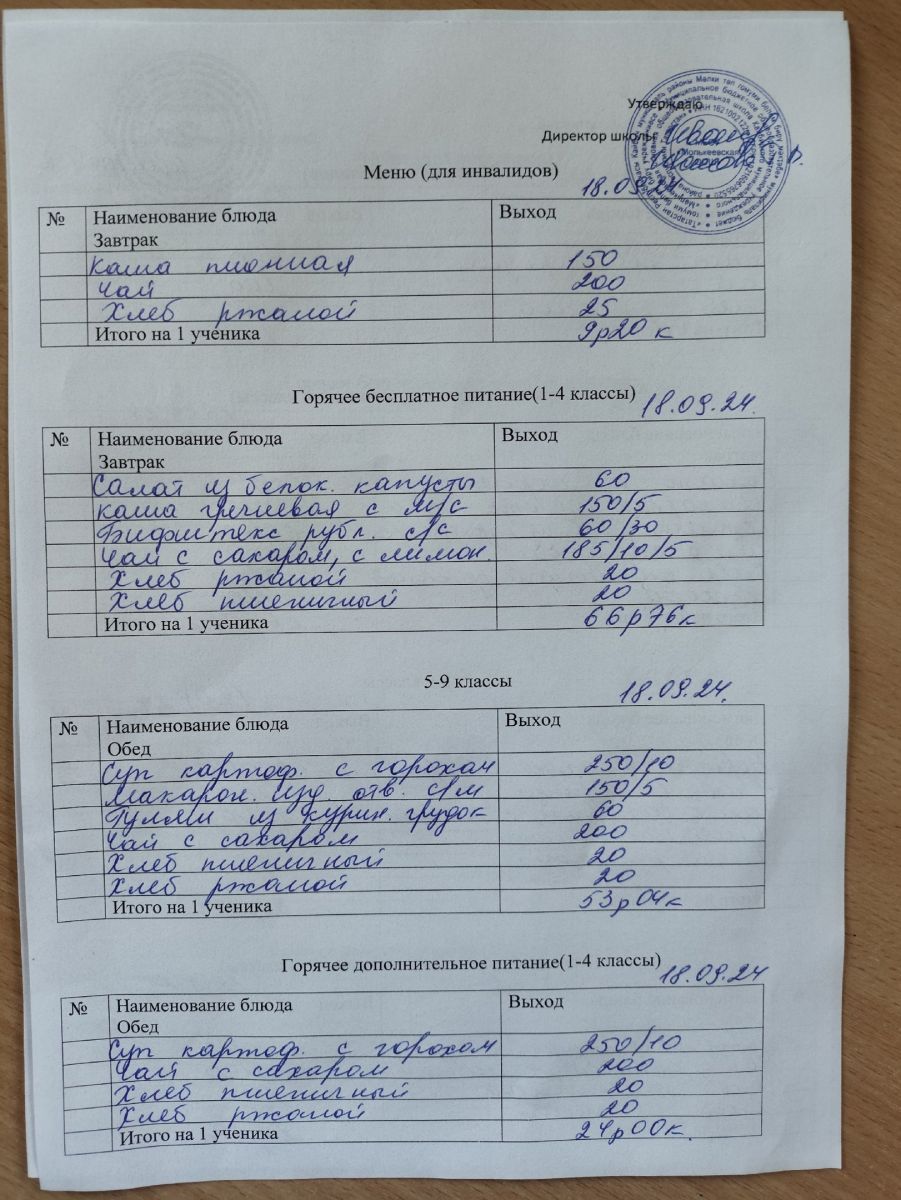 Утверждаю
Директор школы
Меню (для инвалидов)
18.09.24
№ Наименование блюда Выход
Завтрак
Каша пшенная 150
Чай 200
Хлеб ржаной 25
Итого на 1 ученика 9р20 к
Горячее бесплатное питание(1-4 классы) 18.09.24.
№ Наименование блюда Выход
Завтрак
Салат из белок. капусты 60
каша гречневая с м/с 150/5
Бифштекс рубл. с/с 60/30
Чай с сахаром, с лимон. 185/10/5
Хлеб ржаной 20
Хлеб пшеничный 20
Итого на 1 ученика 66р76к
5-9 классы 18.09.24.
№ Наименование блюда Выход
Обед
Суп картоф. с горохом 250/10
Макарон. изд отв. с/м 150/5
Гуляш из курин. грудок 60
Чай с сахаром 200
Хлеб пшеничный 20
Хлеб ржаной 20
Итого на 1 ученика 53р04к
Горячее дополнительное питание(1-4 классы) 18.09.24
№ Наименование блюда Выход
Обед
Суп картоф. с горохом 250/10
Чай с сахаром 200
Хлеб пшеничный 20
Хлеб ржаной 20
Итого на 1 ученика 24р00к.